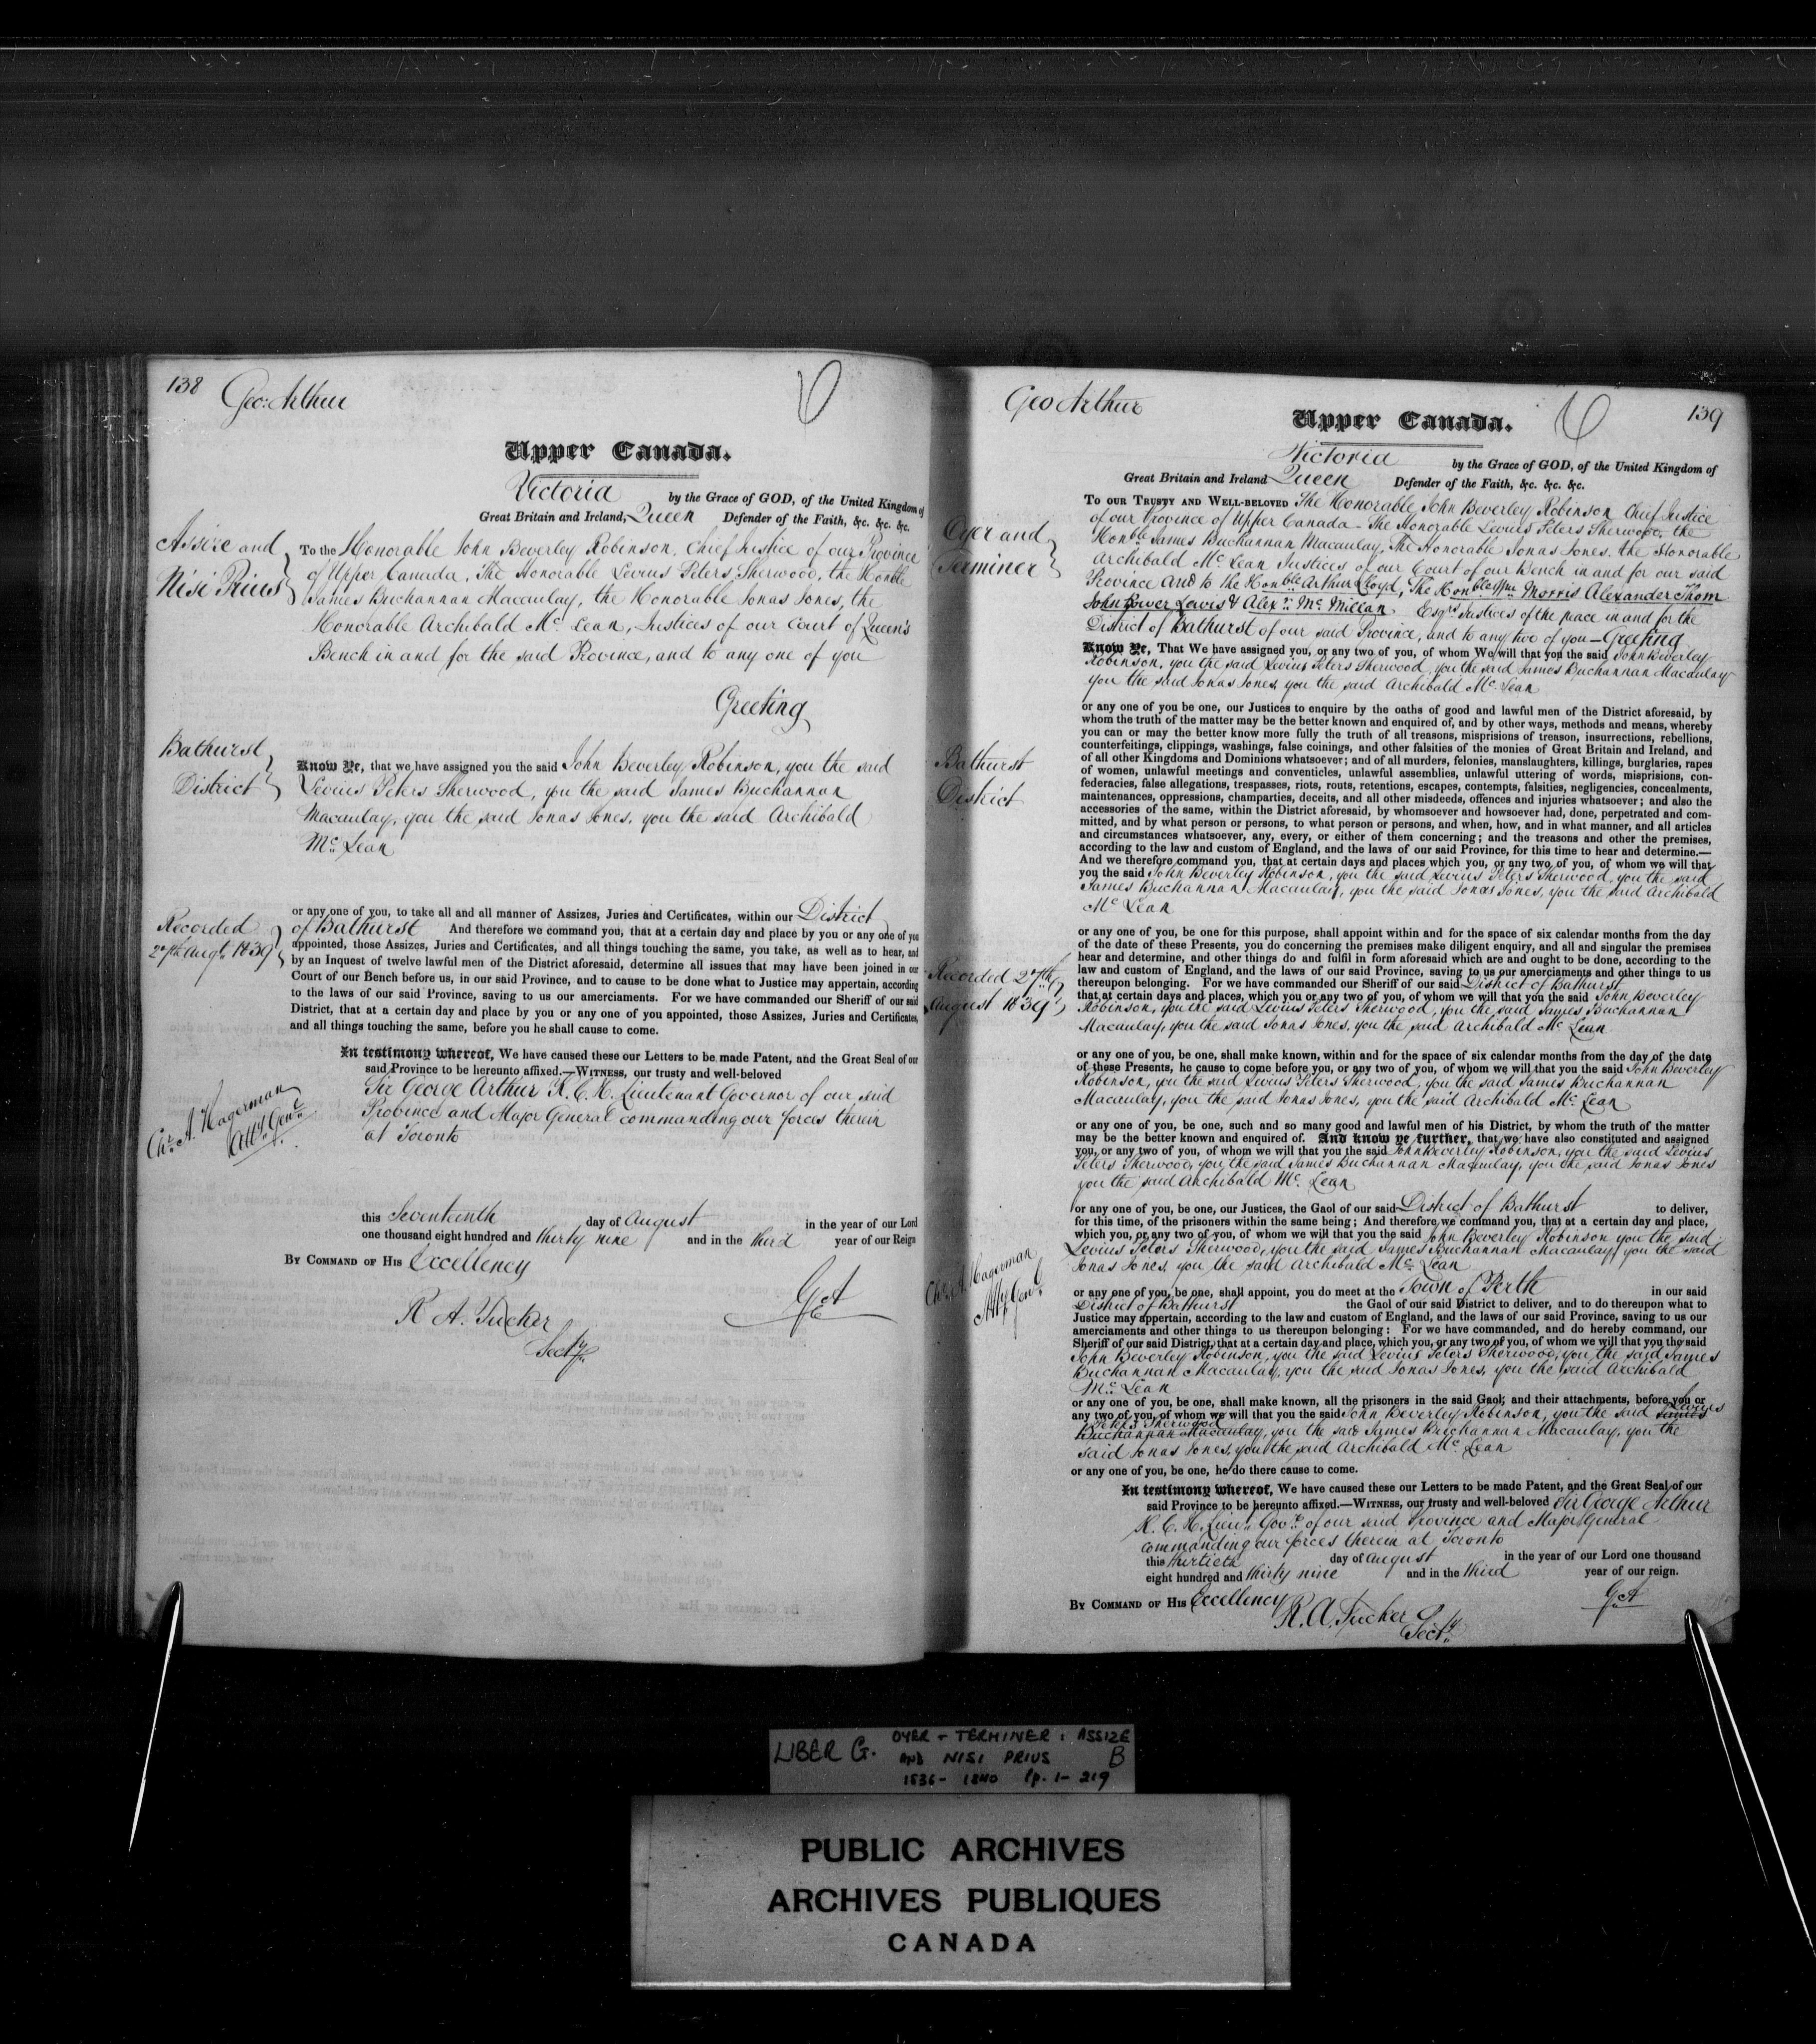 138
Geo: Arthur
Upper Canada.
Victoria by the Grace of GOD, of the United Kingdom of
Great Britain and Ireland, Queen Defender of the Faith, &c. &c. &c.
Assize and
Nisi Prius
To the Honorable John Beverley Robinson, Chief Justice of our Province
of Upper Canada, The Honorable Levius Peters Sherwood, the Honble
James Buchannan Macaulay, the Honorable Jonas Jones, the
Honorable Archibald Mc. Lean, Justices of our Court of Queen's
Bench in and for the said Province, and to any one of you
Greeting
Bathurst
District
Know Ye, that we have assigned you the said John Beverley Robinson, you the said
Levius Peters Sherwood, you the said James Buchannan
Macaulay, you the said Jonas Jones, you the said Archibald
Mc. Lean
Recorded
27th Augt. 1839
or any one of you, to take all and all manner of Assizes, Juries and Certificates, within our District
of Bathurst And therefore we command you, that at a certain day and place by you or any one of you
appointed, those Assizes, Juries and Certificates, and all things touching the same, you take, as well as to hear, and
by an Inquest of twelve lawful men of the District aforesaid, determine all issues that may have been joined in our
Court of our Bench before us, in our said Province, and to cause to be done what to Justice may appertain, according
to the laws of our said Province, saving to us our amerciaments. For we have commanded our Sheriff of our said
District, that at a certain day and place by you or any one of you appointed, those Assizes, Juries and Certificates,
and all things touching the same, before you he shall cause to come.
In testimony whereof, We have caused these our Letters to be made Patent, and the Great Seal of our
said Province to be hereunto affixed.—WITNESS, our trusty and well-beloved
Sir George Arthur K. C. H. Lieutenant Governor of our said
Province and Major General commanding our forces therein
at Toronto
Chr. A. Hagerman
Atty. Genl.
this Seventeenth day of August in the year of our Lord
one thousand eight hundred and thirty nine and in the third year of our Reign
BY COMMAND OF HIS Excellency
R A. Tucker
Secty.
G. A
139
Geo Arthur
Upper Canada.
Victoria by the Grace of GOD, of the United Kingdom of
Great Britain and Ireland Queen Defender of the Faith, &c. &c. &c.
Oyer and
Terminer
TO OUR TRUSTY AND WELL-BELOVED The Honorable John Beverley Robinson Chief Justice
of our Province of Upper Canada - The Honorable Levius Peters Sherwood, the
Honble James Buchannan Macaulay, The Honorable Jonas Jones. the Honorable
Archibald Mc. Lean Justices of our Court of our Bench in and for our said
Province and to the Honble Arthur Lloyd, The Honble Wm. Morris Alexander Thom
John Power Lewis & Alexr. Mc. Millan Esqrs. Justices of the peace in and for the
District of Bathurst of our said Province, and to any two of you - Greeting
Know Ye, That We have assigned you, or any two of you, of whom We will that you the said John Beverley
Robinson, you the said Levius Peters Sherwood, you the said James Buchannan Macaulay
you the said Jonas Jones, you the said Archibald Mc. Lean
Bathurst
District
or any one of you be one, our Justices to enquire by the oaths of good and lawful men of the District aforesaid, by
whom the truth of the matter may be the better known and enquired of, and by other ways, methods and means, whereby
you can or may the better know more fully the truth of all treasons, misprisions of treason, insurrections, rebellions,
counterfeitings, clippings, washings, false coinings, and other falsities of the monies of Great Britain and Ireland, and
of all other Kingdoms and Dominions whatsoever; and of all murders, felonies, manslaughters, killings, burglaries, rapes
of women, unlawful meetings and conventicles, unlawful assemblies, unlawful uttering of words, misprisions, con-
federacies, false allegations, trespasses, riots, routs, retentions, escapes, contempts, falsities, negligencies, concealments,
maintenances, oppressions, champarties, deceits, and all other misdeeds, offences and injuries whatsoever; and also the
accessories of the same, within the District aforesaid, by whomsoever and howsoever had, done, perpetrated and com-
mitted, and by what person or persons, to what person or persons, and when, how, and in what manner, and all articles
and circumstances whatsoever, any, every, or either of them concerning; and the treasons and other the premises,
according to the law and custom of England, and the laws of our said Province, for this time to hear and determine.—
And we therefore command you, that at certain days and places which you, or any two of you, of whom we will that
you the said John Beverley Robinson, you the said Levius Peters Sherwood, you the said
James Buchannan Macaulay, you the said Jonas Jones, you the said Archibald
Mc Lean
Recorded 27th
August 1839
or any one of you, be one for this purpose, shall appoint within and for the space of six calendar months from the day
of the date of these Presents, you do concerning the premises make diligent enquiry, and all and singular the premises
hear and determine, and other things do and fulfil in form aforesaid which are and ought to be done, according to the
law and custom of England, and the laws of our said Province, saving to us our amerciaments and other things to us
thereupon belonging. For we have commanded our Sheriff of our said District of Bathurst
that at certain days and places, which you or any two of you, of whom we will that you the said John Beverley
Robinson, you the said Levius Peters Sherwood, you the said James Buchannan
Macaulay, you the said Jonas Jones, you the said Archibald Mc Lean
or any one of you, be one, shall make known, within and for the space of six calendar months from the day of the date
of these Presents, he cause to come before you, or any two of you, of whom we will that you the said John Beverley
Robinson, you the said Levius Peters Sherwood, you the said James Buchannan
Macaulay, you the said Jonas Jones, you the said Archibald Mc. Lean
or any one of you, be one, such and so many good and lawful men of his District, by whom the truth of the matter
may be the better known and enquired of. And know ye further, that we have also constituted and assigned
you, or any two of you, of whom we will that you the said John Beverley Robinson, you the said Levius
Peters Sherwood, you the said James Buchannan Macaulay, you the said Jonas Jones
you the said Archibald Mc. Lean
or any one of you, be one, our Justices, the Gaol of our said District of Bathurst to deliver,
for this time, of the prisoners within the same being; And therefore we command you, that at a certain day and place,
which you, or any two of you, of whom we will that you the said John Beverley Robinson you the said
Levius Peters Sherwood, you the said James Buchannan Macaulay, you the said
Jonas Jones, you the said Archibald Mc. Lean
Chr. A. Hagerman
Atty. Genl.
or any one of you, be one, shall appoint, you do meet at the Town of Perth in our said
District of Bathurst the Gaol of our said District to deliver, and to do thereupon what to
Justice may appertain, according to the law and custom of England, and the laws of our said Province, saving to us our
amerciaments and other things to us thereupon belonging: For we have commanded, and do hereby command, our
Sheriff of our said District, that at a certain day and place, which you, or any two of you, of whom we will that you the said
John Beverley Robinson, you the said Levius Peters Sherwood, you the said James
Buchannan Macaulay, you the said Jonas Jones, you the said Archibald
Mc. Lean
or any one of you, be one, shall make known, all the prisoners in the said Gaol, and their attachments, before you or
any two of you, of whom we will that you the said John Beverley Robinson, you the said James Levius
Peters Sherwood
Buchannan Macaulay, you the said James Buchannan Macaulay, you the
said Jonas Jones, you the said Archibald Mc. Lean
or any one of you, be one, he do there cause to come.
In testimony whereof, We have caused these our Letters to be made Patent, and the Great Seal of our
said Province to be hereunto affixed.—WITNESS, our trusty and well-beloved Sir George Arthur
K. C. H. Lieut. Govr. of our said Province and Major General
commanding our forces therein at Toronto
this thirtieth day of August in the year of our Lord one thousand
eight hundred and thirty nine and in the third year of our reign.
BY COMMAND OF HIS Excellency
R. A. Tucker
Secty.
G. A
LIBER G. OYER + TERMINER: ASSIZE
AND NISI PRIUS B
1836 - 1840 Pp. 1 - 219
PUBLIC ARCHIVES
ARCHIVES PUBLIQUES
CANADA